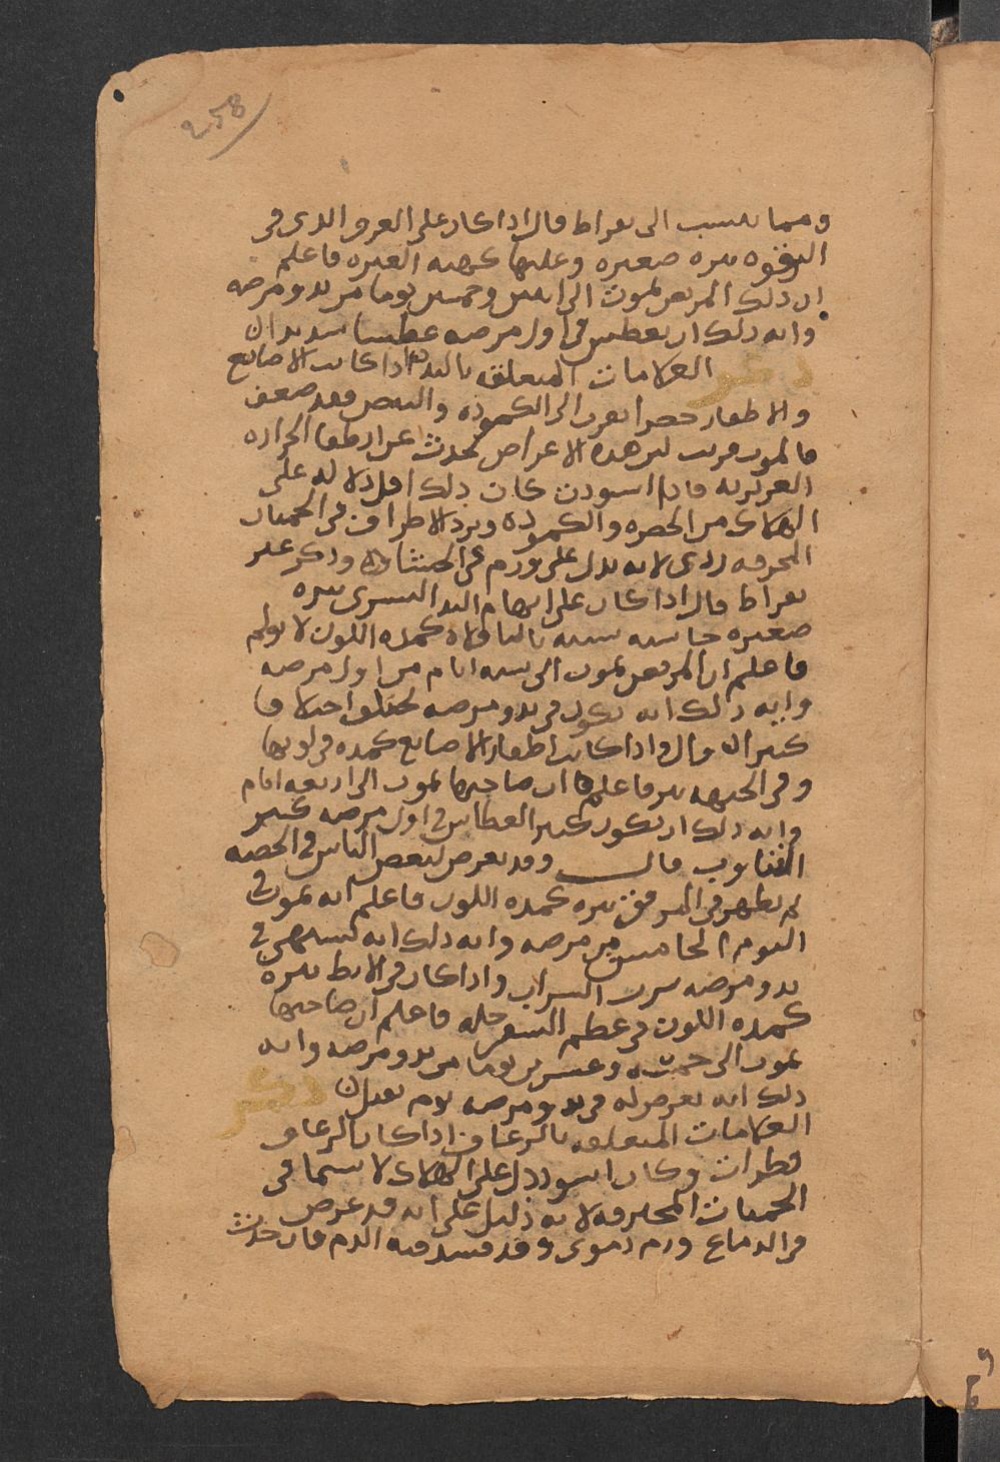 258
ومما ينسب الى بقراط قال اذا كان على العرق الذى فى
الترقوه بثره صغيره وعليها كهيه الغبره فاعلم
ان ذلك المريض يموت الى اثنين وخمسين يوما من بدو مرضه
وايه ذلك ان يعطس فى اول مرضه عطسا شديدان
ذكر العلامات المتعلقه باليد اذا كانت الاصابع
والاظفار خضرا تقرب الى الكموده والنبض فقد ضعف
فالموت قريب لان هذه الاعراض تحدث عن انطفا الحراره
الغريزيه فاذا اسودت كان ذلك اقل دلاله على
الهلاك من الخضره والكموده وبرد الاطراف فى الحميات
المحرقه ردى لانه يدل على ورم فى الحشا وذكر عن
بقراط قال اذا كان على ابهام اليد اليسرى بثره
صغيره جاسيه شبيه بالباقلاه كمده اللون لا تولم
فاعلم ان المريض يموت الى سته ايام من اول مرضه
وايه ذلك انه يكون فى بدو مرضه يختلف اختلافا
كثيران قال واذا كانت اظفار الاصابع كمده فى لونها
وفى الجبهه بثر فاعلم ان صاحبها يموت الى اربعه ايام
وايه ذلك ان يكون كثير العطاس فى اول مرضه كثير
التثاوب قال وقد يعرض لبعض الناس فى الحصبه
لم تظهر فى المرفق بثره كمده اللون فاعلم انه يموت فى
اليوم الخامس من مرضه وايه ذلك انه يشتهى فى
بدو مرضه شرب الشراب واذا كان فى الابط بثره
كمده اللون فى عظم السفرجله فاعلم ان صاحبها
يموت الى خمسه وعشرين يوما من بدو مرضه وايه
ذلك انه يعرض له فى بدو مرضه نوم ثقيل ذكر
العلامات المتعلقه بالرعاف اذا كان الرعاف
قطرات وكان اسود دل على الهلاك لا سيما فى
الحميات المحرقه لانه دليل على انه قد عرض
فى الدماغ ورم دموى وقد فسد فيه الدم فان حدث